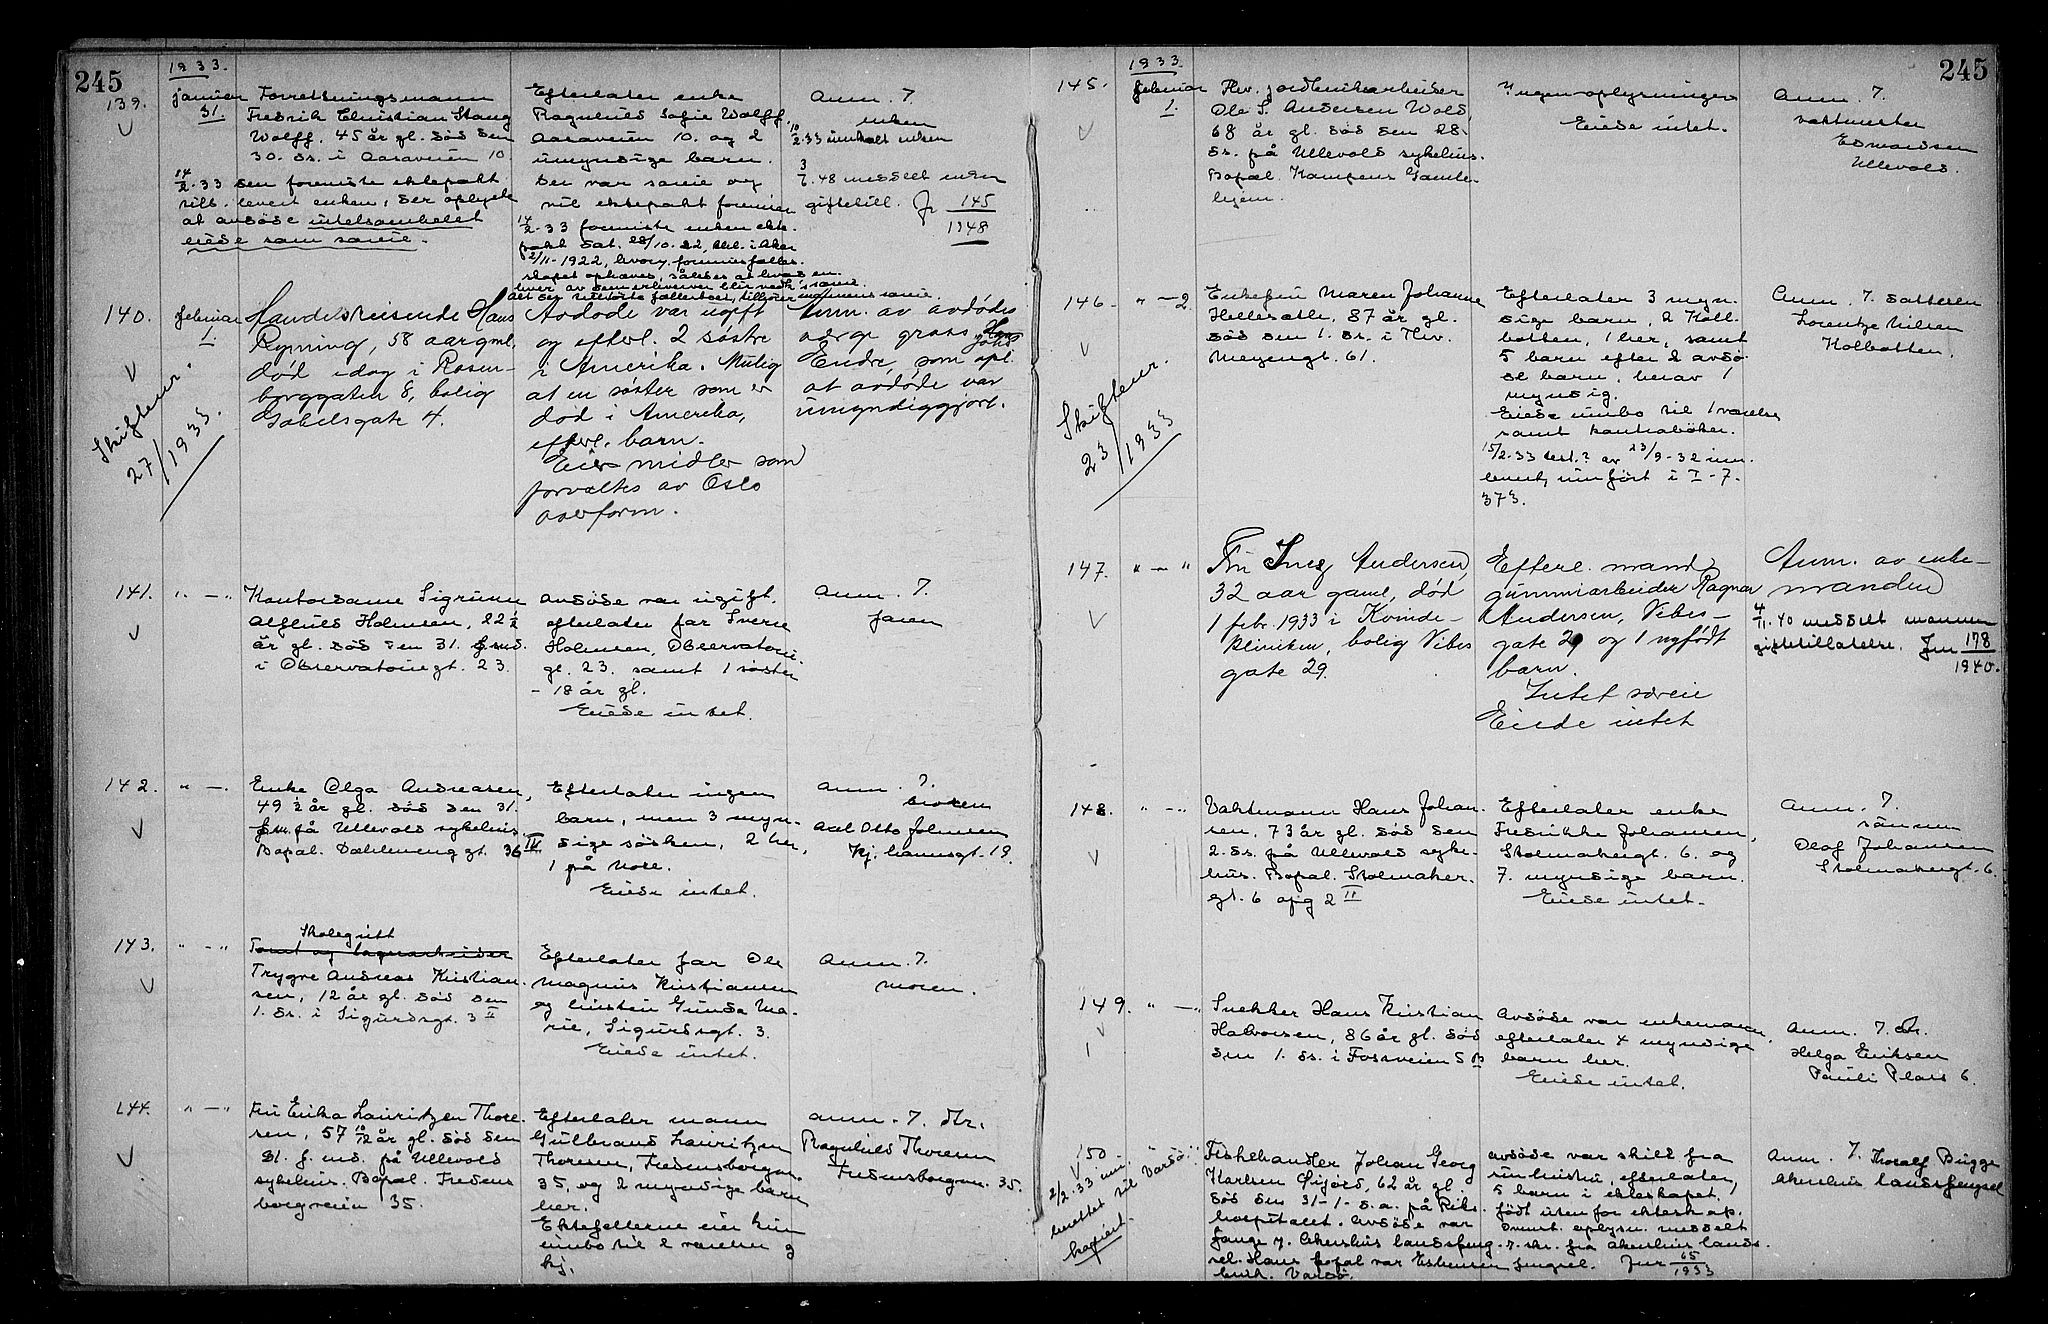 245
1933.
139.
januar
31.
Forretningsmann
Fredrik Christian Stang
Wolff. 45 år gl. død den
30. ds. i Aasaveien 10.
14/2-33 den foreviste ektepakt
blev levert enken, der oplyste
at avdøde intetsomhelst
eiede som særeie.
Efterlater enke
Ragnhild Sofie Wolff,
Aasaveien 10. og 2
umyndige barn.
Der var særeie og
vil ektepakt forevises
14/2-33 foreviste enken ekte-
pakt dat. 28/10-22, tinl. i Aker
2/11-1922, hvorv. formuesfelles-
skapet ophæves, således at hvad en-
hver av dem erhverver blir vedk's særeie.
Anm. 7.
enken
10/2-33 innkalt enken
3/7.48 meddelt enken
giftetill. Jr 145
1948
140.
februar
1.
Skifteur.
27/1933.
Handelsreisende Hans
Ryning, 58 aar gml.
død idag i Rosen-
borggaten 8, bolig
Gabelsgate 4.
Avdøde var ugift
og efterl. 2 søstre
i Amerika. Mulig
at en søster som er
død i Amerika,
efterl. barn.
Eier midler som
forvaltes av Oslo
overform.
Anm. av avdødes
verge
Endre, som opl.
at avdøde var
umyndiggjort.
141.
" — "
Kontordame Sigrunn
Alfhild Holmsen, 22 1/2
år gl. død den 31. f. md.
i Observatoriegt. 23.
Avdøde var ugift.
efterlater far Sverre
Holmsen, Observatorie-
gt. 23. samt 1 søster
- 18 år gl.
Eiede intet.
Anm. 7.
faren
142.
" —
Enke Olga Andreasen,
49 1/2 år gl. død den 31.
f.m. på Ullevold sykehus.
Bopæl. Dahlenenggt. 36 IV
Efterlater ingen
barn, men 3 myn-
dige søsken, 2 her,
1 på Moss.
Eiede intet.
Anm. 7.
broren
Axel Otto Johnsen
Kj. 19.
143.
" — "
Skolegutt
Trygve Andreas Kristian-
sen, 12 år gl. død den
1. ds. i Sigurdsgt. 3 II
Efterlater far Ole
Magnus Kristiansen
og hustru Gunda Ma-
rie, Sigurdsgt. 3.
Eiede intet.
Anm. 7.
moren.
144.
" — "
Fru Erika Lauritzen Thore-
sen, 57 10/12 år gl. død den
31. f. md. på Ullevold
sykehus. Bopæl. Fredens-
borgveien 35.
Efterlater mann
Gulbrand Lauritzen
Thoresen, Fredensborgvn.
35, og 2 myndige barn
her.
Ektefellerne eier kun
innbo til 2 værelser og
kj.
Anm. 7. dtr.
Ragnhild Thoresen
Fredensborgvn. 35.
1933.
245
145.
februar
1.
Fhv. jordbruksarbeider
Ole S. Andersen Wold,
68 år gl. død den 28.
ds. på Ullevold sykehus.
Bopæl. Kampens Gamle-
hjem.
Ingen oplysninger
Eiede intet.
Anm. 7.
vaktmester
Edvardsen
Ullevold.
146.
" — 2
Skifteur.
23/1933
Enkefru Maren Johanne
Hellesøth, 87 år gl.
død den 1. ds. i Thv.
Meyersgt. 61.
Efterlater 3 myn-
dige barn, 2 Kol-
botten, 1 her, samt
5 barn efter 2 avdø-
de barn, herav 1
myndig.
Eiede innbo til 1 værelse
samt kontrabøker.
15/2-33 test. av 23/9-32 inn-
levert, innført i I-7-
373.
Anm. 7. datteren
Lorentze Nilsen
Kolbotten.
147.
" — "
Fru Inez Andersen,
32 aar gaml, død
1 febr. 1933 i Kvinde-
kliniken, bolig Vibes
gate 29.
Efterl. mand
gummiarbeider Ragnar
Andersen, Vibes-
gate 29 og 1 nyfødt
barn.
Intet særeie
Eiede intet
Anm. av enke-
manden
4/11-40 meddelt mannen
giftetillatelse. Jnr 178
1940.
148.
" — "
Vaktmann Hans Johan-
sen, 73 år gl. død den
2. ds. på Ullevold syke-
hus. Bopæl. Stolmaker-
gt. 6 opg 2 II
Efterlater enke
Fredrikke Johansen,
Stolmakergt. 6. og
7. myndige barn.
Eiede intet.
Anm. 7.
sønnen
Olaf Johansen
Stolmakergt. 6.
149.
" — "
Snekker Hans Kristian
Halvorsen, 86 år gl. død
den 1. ds. i Fossveien 5 B
Avdøde var enkemann,
efterlater 4 myndige
barn her.
Eiede intet.
Anm. 7. dtr.
Helga Eriksen
Pauls Plass 6.
150
2/2.33 inn-
berettet til Vardø.
kopiert.
Fiskehandler Johan Georg
Karlsen Gijörd, 62 år gl.
død den 31-1-d.a. på Riks-
hospitalet. Avdøde var
fange v. Akershus landsfeng-
sel. Hans bopæl var
Vardø.
avdøde var skilt fra
sin hustru, efterlater,
5 barn i ekteskapet.
født uten for ekteskap.
oplysn. meddelt
v. skr. fra Akershus lands-
fengsel. Jnr 65
1933
Anm. 7. Thoralf Bugge
Akershus landsfengsel